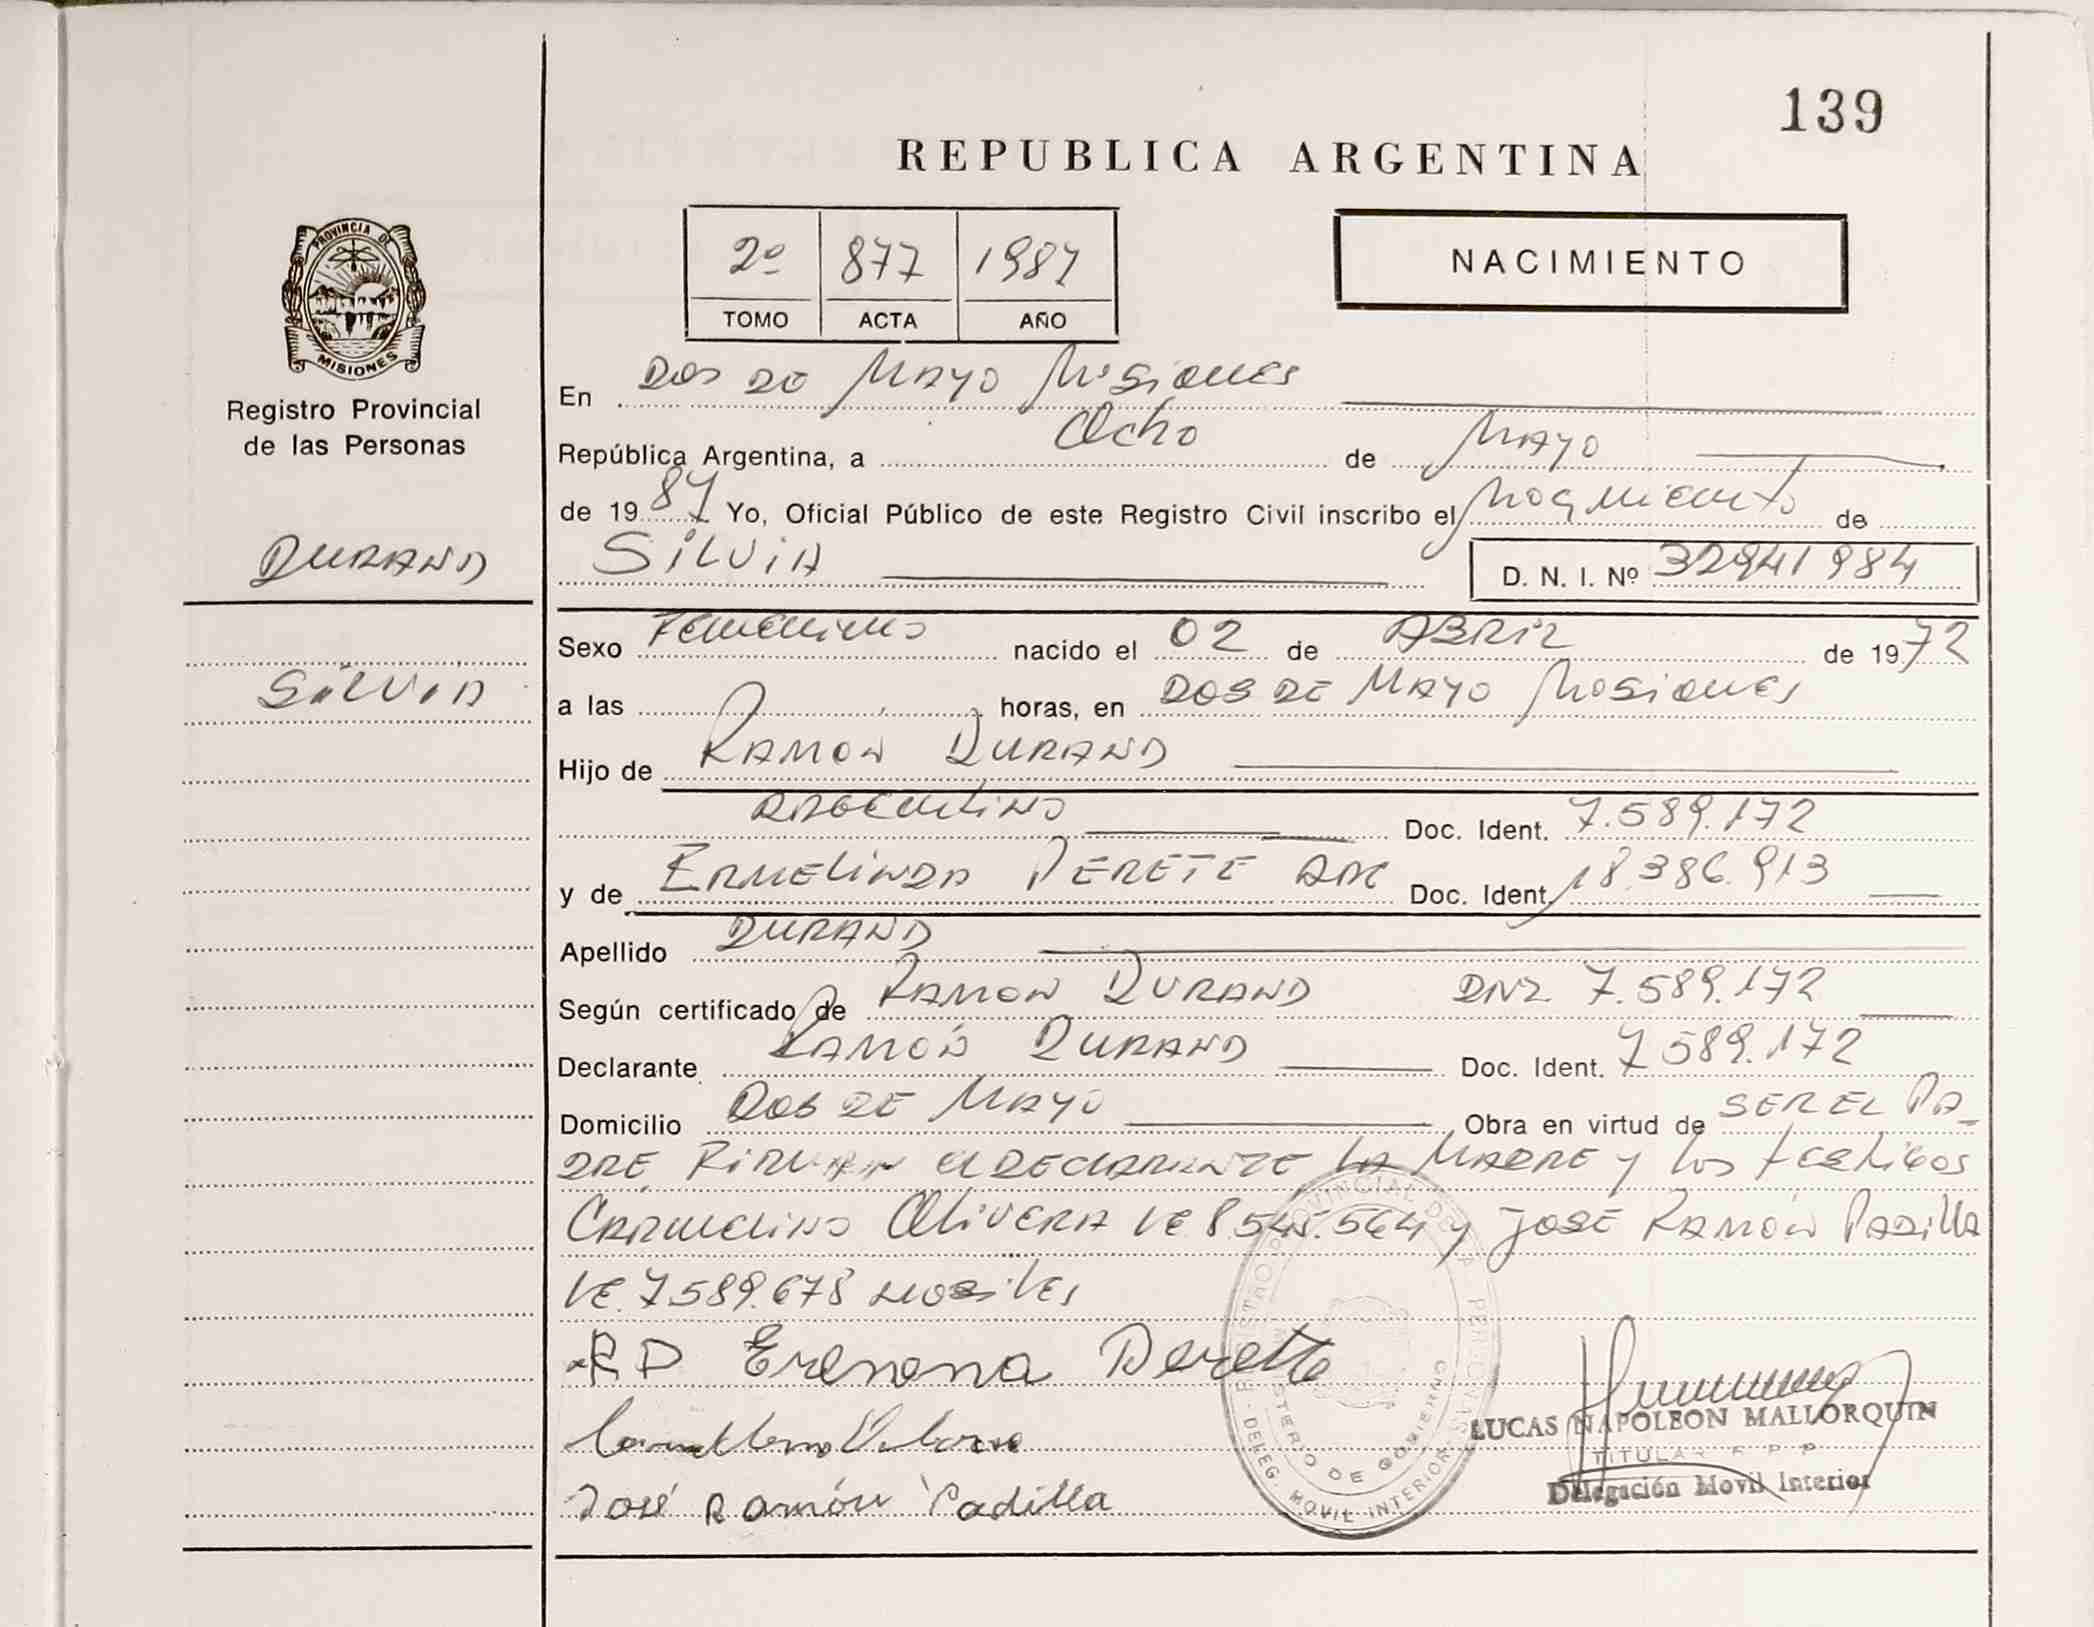 139
REPUBLICA ARGENTINA
2º 877 1987
TOMO ACTA AÑO
NACIMIENTO
PROVINCIA DE
MISIONES
Registro Provincial
de las Personas
DURAND
SILVIA
En DOS DE MAYO Misiones
República Argentina, a Ocho de MAYO
de 1987 Yo, Oficial Público de este Registro Civil inscribo el de
SILVIA D. N. I. Nº 32941984
Sexo Femenino nacido el 02 de ABRIL de 1972
a las horas, en DOS DE MAYO Misiones
Hijo de RAMON DURAND
ARGENTINO Doc. Ident. 7.589.172
y de ERMELINDA PERETE ARG Doc. Ident. 18.386.913
Apellido DURAND
Según certificado de RAMON DURAND DNI 7.589.172
Declarante RAMÓN DURAND Doc. Ident. 7589.172
Domicilio DOS DE MAYO Obra en virtud de SER EL PA-
DRE FIRMAN el DECLARANTE LA MADRE y los testigos
CARMELINO OLIVERA LE 8.545.564 y JOSE RAMÓN PADILLA
LE.7589.678
RD
José Ramón Padilla
LUCAS NAPOLEON MALLORQUIN
TITULAR R P P
Delegación Movil Interior
REGISTRO PROVINCIAL DE LAS PERSONAS - DELEG. MOVIL INTERIOR
MINISTERIO DE GOBIERNO